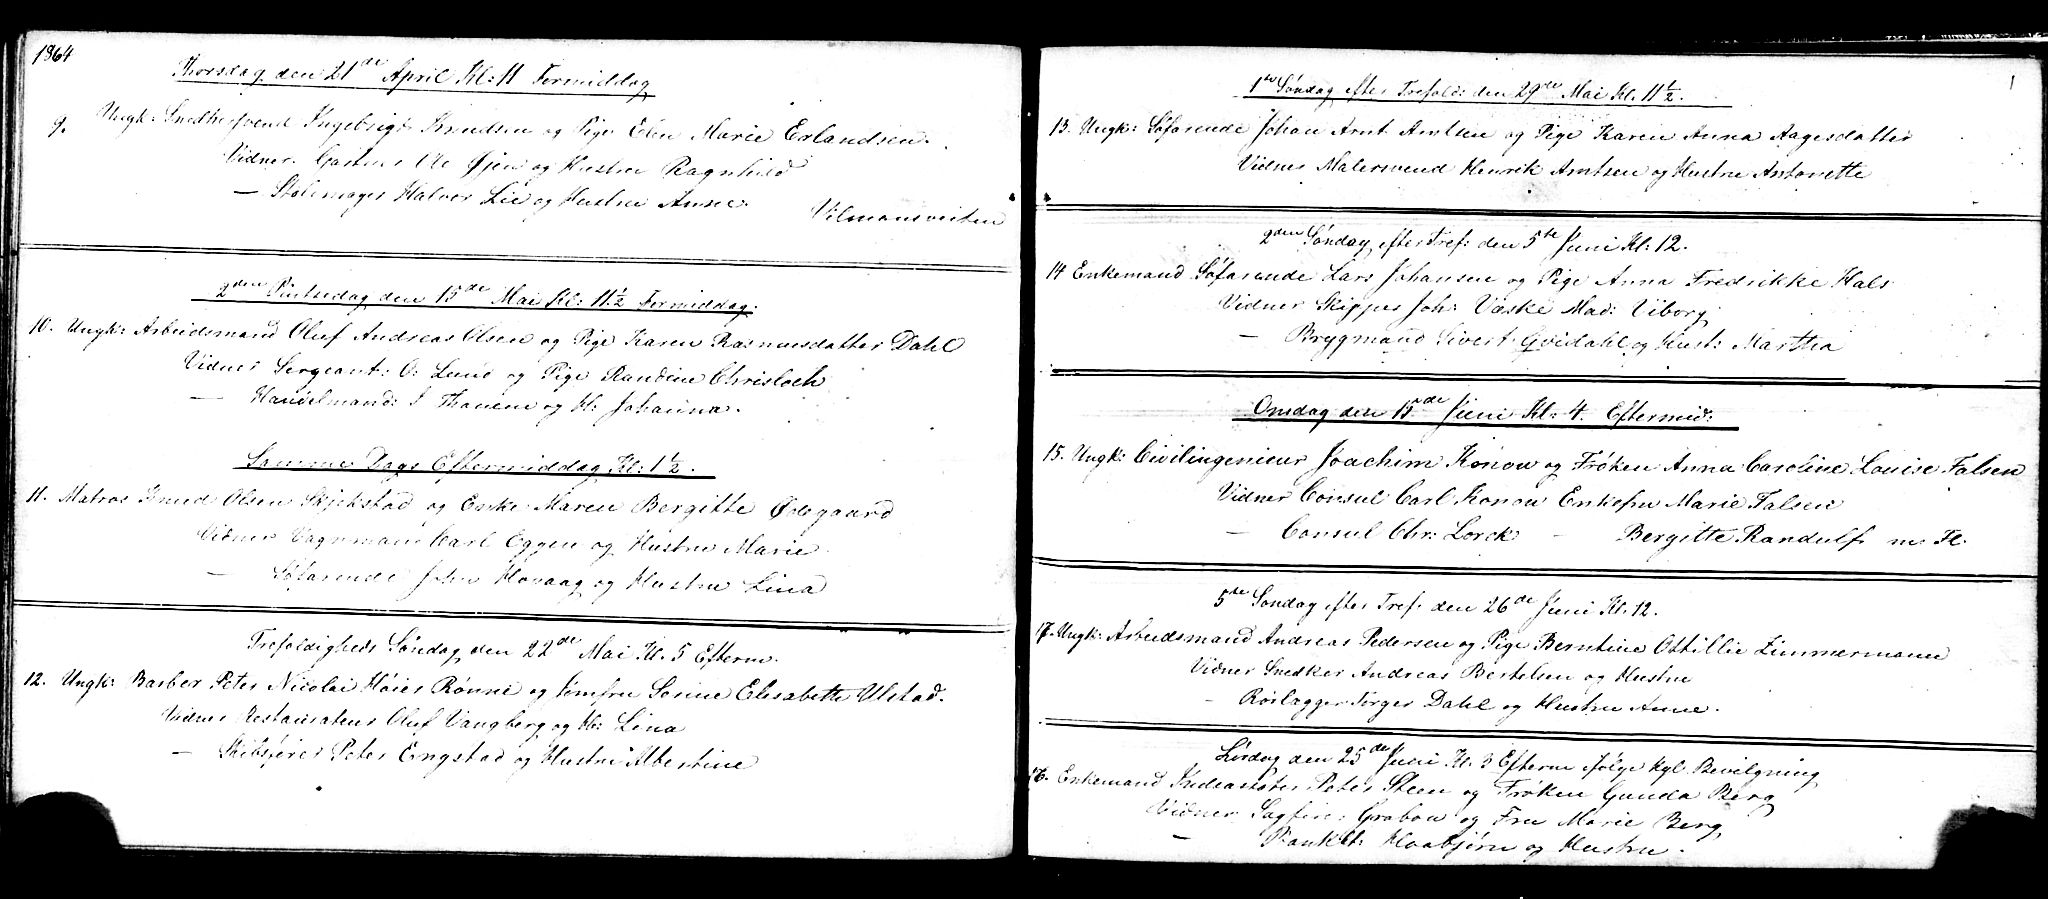 1864
Thorsdag den 21de April Kl: 11 Formiddag
9. Ungk: Snedkersvend Ingebrigt Knudsen og Pige Elen Marie Erlandsen.
Vidner Ole Øjen og Hustru Ragnhild
— Stolemager Halver Lie og Hustru Anne. Vilmansveiten
2den Pintsedag den 15de Mai Kl: 11 1/2 Formiddag.
10. Ungk: Arbeidsmand Oluf Andreas Olsen og Pige Karen Rasmusdatter Dahl
Vidner Sergeant: O: Lund og Pige Randine
— Handelmand: J og H: Johanna.
Samme Dags Eftermiddag Kl: 1 1/2.
11. Matros Knud Olsen Skjekstad og Enke Maren Bergitte Ødegaard
Vidner Vognmand Carl Eggen og Hustru Marie.
— Søfarende John Hovaag og Hustru Lina
Trefoldigheds Søndag den 22de Mai Kl. 5 Efterm.
12. Ungk: Barber Peter Nicolai Høier Rønne og Jomfru Sorine Elisabeth Ulstad.
Vidner Restaurateur Oluf Vangberg og H: Lina
— Peter Engstad og Hustru Albertine
1
1ste Søndag efter Trefold: den 29de Mai Kl. 11 1/2.
13. Ungk: Søfarende Johan Arnt Arntsen og Pige Karen Anna Aagesdatter
Vidner Malersvend Henrik Arntsen og Hustru Antonette
2den Søndag efter Tref: den 5te Juni Kl: 12.
14 Enkemand Søfarende Lars Johansen og Pige Anna Fredrikke Hals
Vidner Skipper Joh: Væske Mad: Viborg
— Brygmand Sivert Gvidahl og Hust: Martha
Onsdag den 15de Juni Kl: 4. Eftermid:
15. Ungk: Civilingenieur Joachim Konow og Frøken Anna Caroline Louise Falsen
Vidner Consul Carl Konow Enkefru Marie Falsen
— Consul Chr: Lorck — Bergitte Randulf m. Fl.
5te Søndag efter Tref: den 26de Juni Kl: 12.
17. Ungk: Arbeidsmand Andreas Pedersen og Pige Berntine Ottillie Zimmermann
Vidner Snedker Andreas Bertelsen og Hustru
— Rørlægger Torger Dahl og Hustru Anne.
Lørdag den 25de Juni Kl. 3 Efterm ifølge Kgl Bevilgning
16. Enkemand Peter Steen og Frøken Gunda Berg
Vidner Sagfør: Grabow og Fru Marie Berg
— Hovbjørn og Hustru.